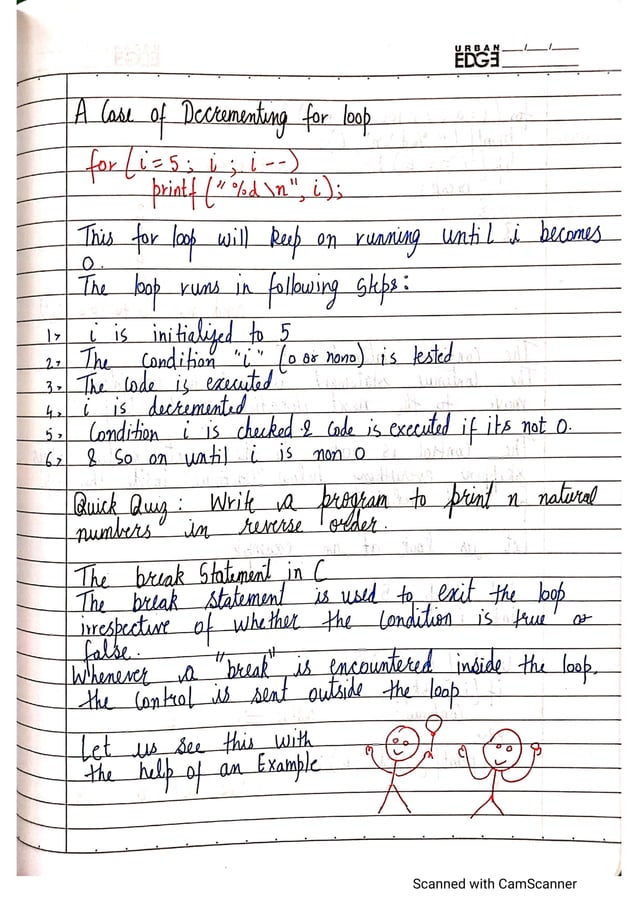 URBAN
EDGE
A Case of Decrementing for loop
for (i=5; i; i--)
printf ("%d\n", i);
This for loop will keep on running until i becomes
0.
The loop runs in following steps:
1> i is initialized to 5
2> The Condition "i" (0 or nono) is tested
3> The Code is executed
4> i is decremented
5> Condition i is checked & Code is executed if its not 0.
6> & So on until i is non 0
Quick Quiz: Write a program to print n natural
numbers in reverse order.
The break Statement in C
The break statement is used to exit the loop
irrespective of whether the Condition is true or
false.
Whenever a "break" is encountered inside the loop,
the Control is sent outside the loop
Let us see this with
the help of an Example
Scanned with CamScanner